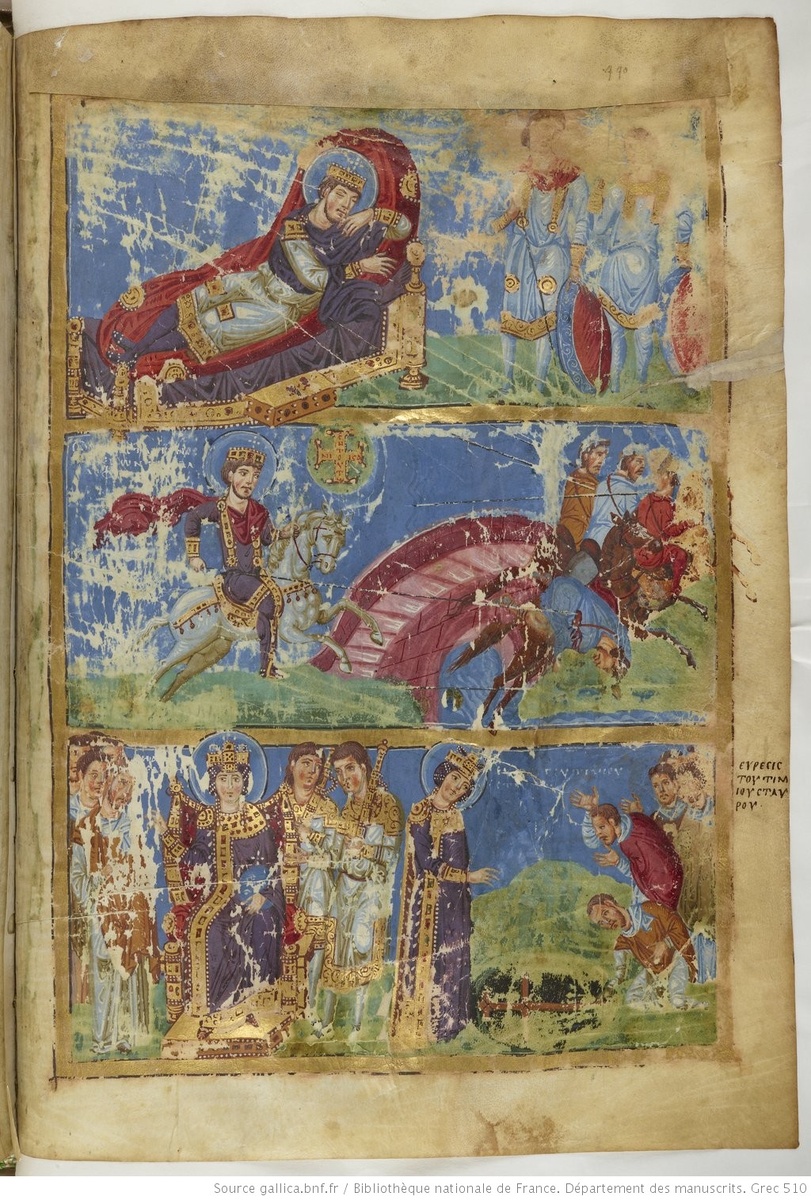 ΕΥΡΕϹΙϹ
ΤΟΥΤΙΜ
ΙΟΥϹΤΑΥ
ΡΟΥ·
Source gallica.bnf.fr / Bibliothèque nationale de France. Département des manuscrits. Grec 510